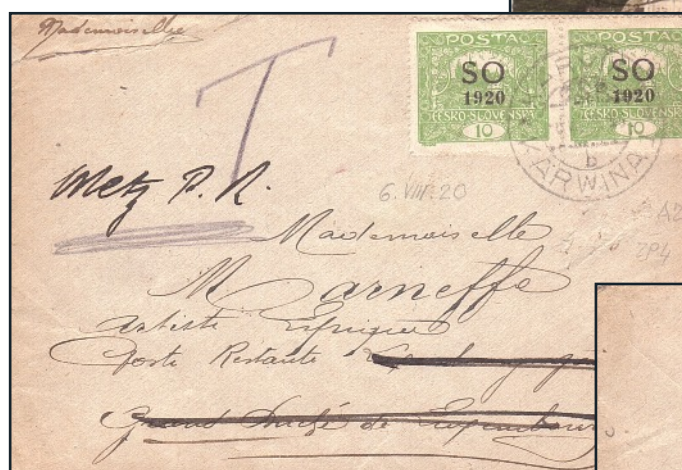 Mademoiselle
T
POSTA
SO
1920
ČESKO-SLOVENSKÁ
10
POSTA
SO
1920
ČESKO-SLOVENSK
10
b
KARWINA
Metz P. R.
6. VIII. 20
A2
2P4
Mademoiselle
M Carneffe
Artiste Lyrique
Poste Restante
Grand Duché de Luxembourg